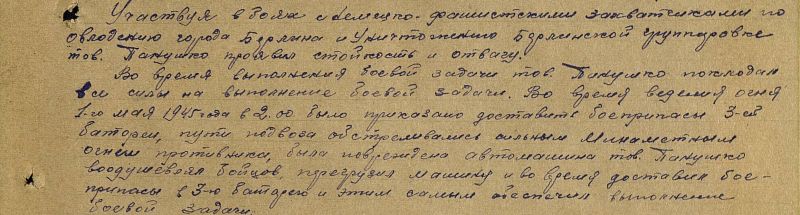 Участвуя в боях с немецко-фашистскими захватчиками по
овладению города Берлина и уничтожению Берлинской группировке
тов. Панушко проявил стойкость и отвагу.
Во время выполнения боевой задачи тов. Панушко покладал
все силы на выполнение боевой задачи. Во время ведения огня
1-го мая 1945 года в 2.00 было приказано доставить боеприпасы 3-ей
батареи, пути подвоза обстреливались сильным минометным
огнем противника, была повреждена автомашина тов. Панушко
воодушевлял бойцов, перегрузил машину и во время доставил бое-
припасы в 3-ю батарею и этим самым обеспечил выполнение
боевой задачи.